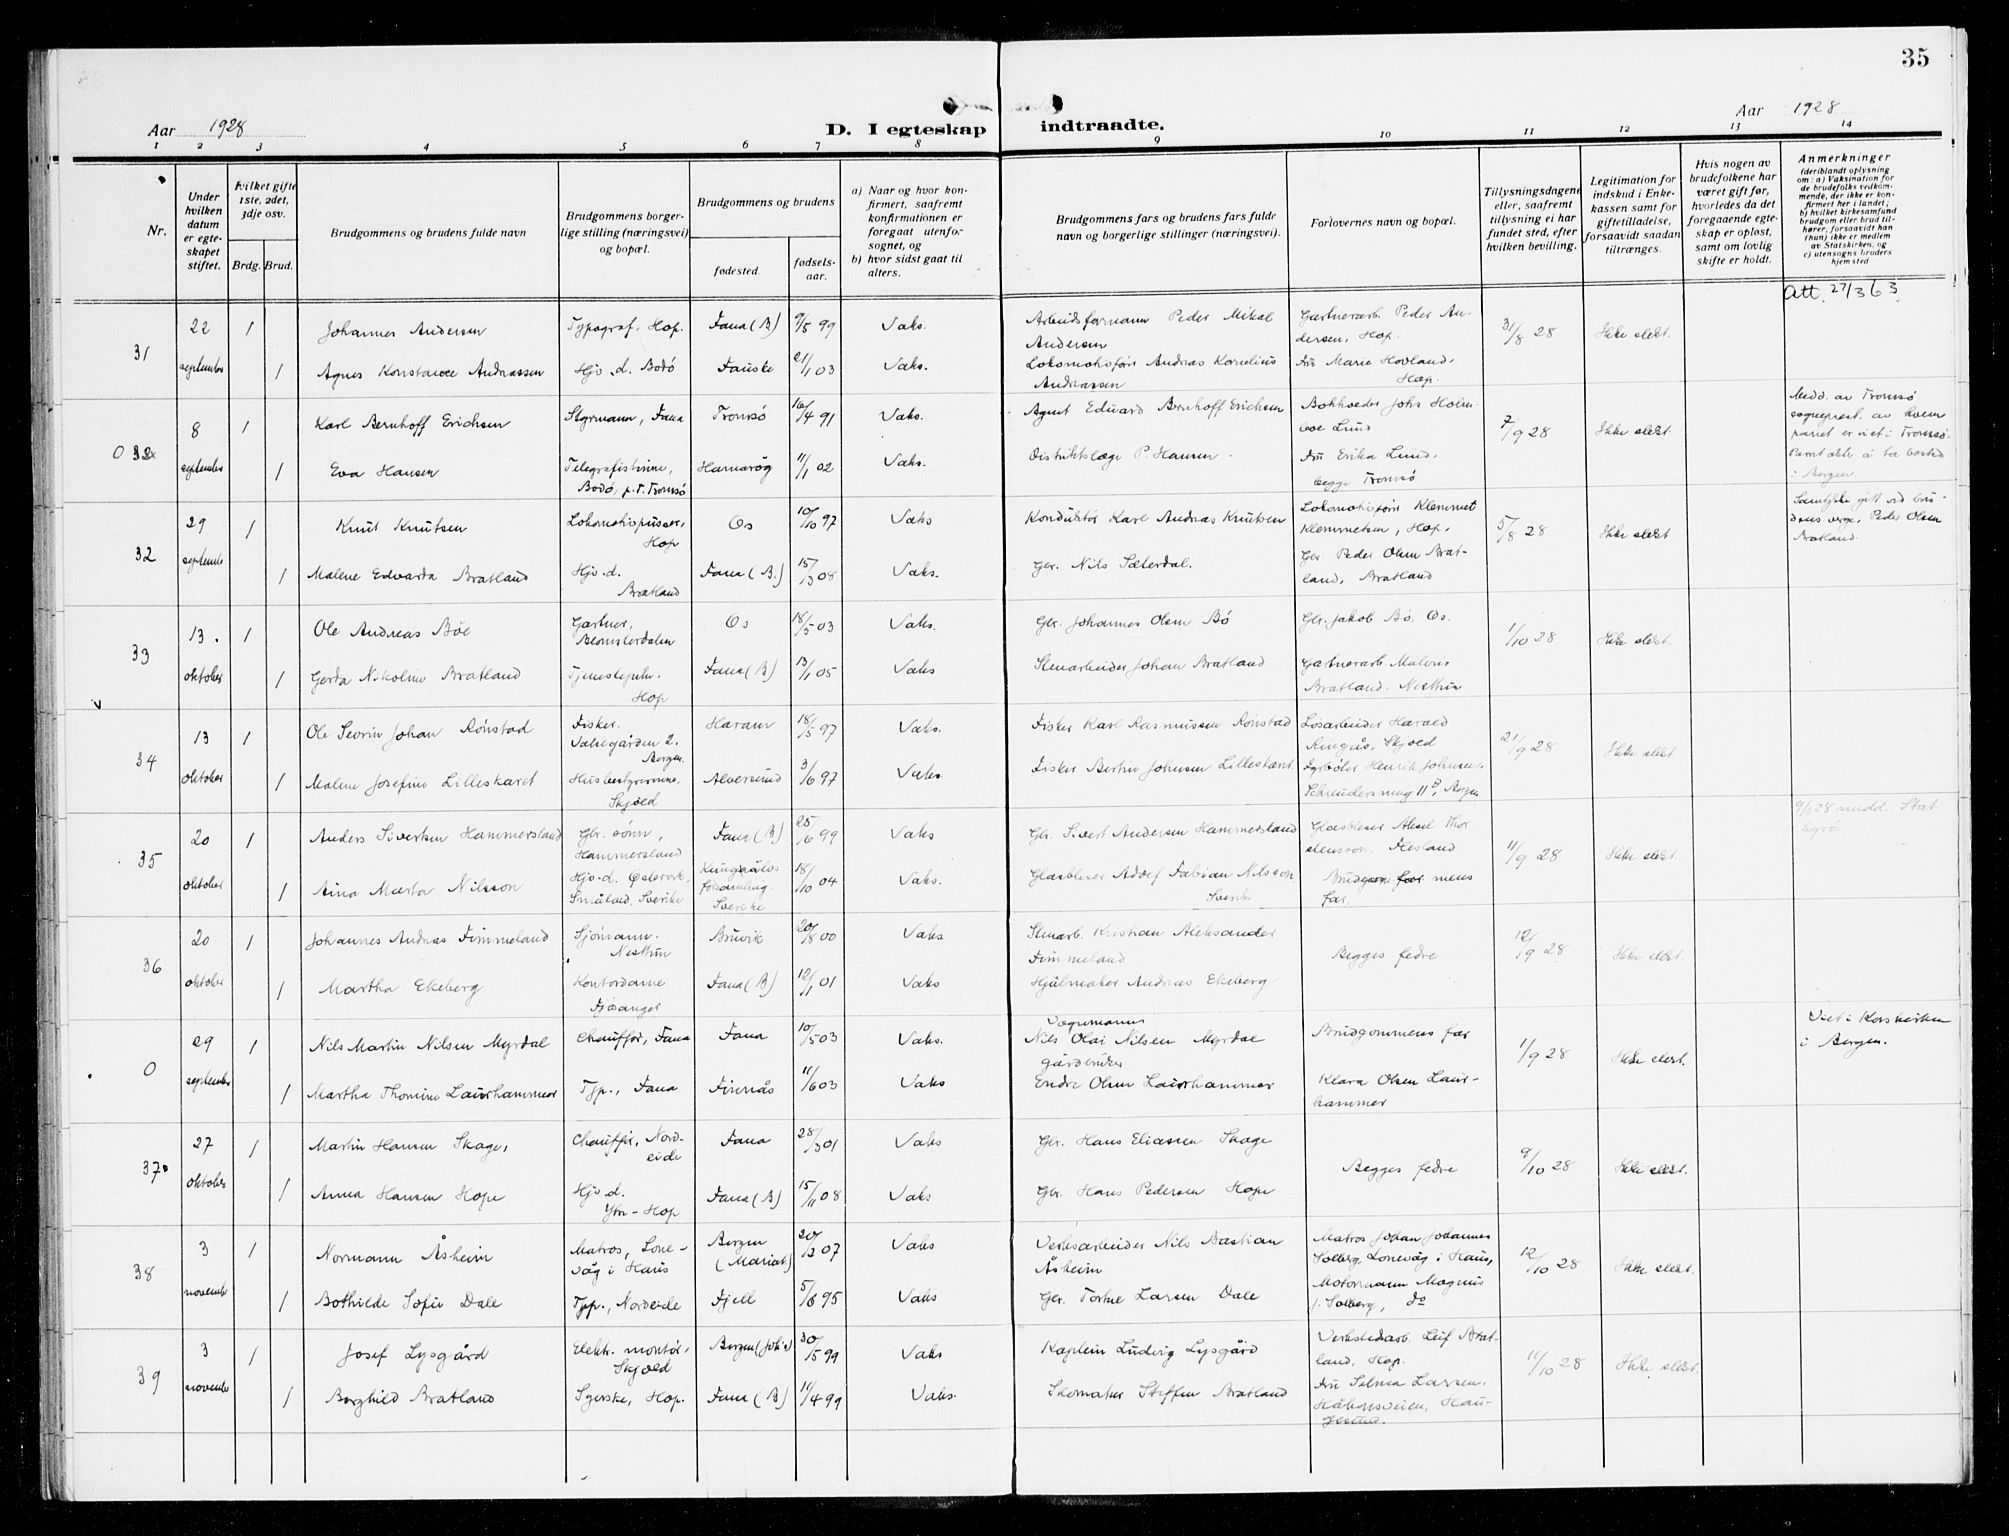 35
Aar 1928
D. I egteskap indtraadte.
Aar 1928
1 2 3 4 5 6 7 8 9 10 11 12 13 14
Nr.
Under hvilken datum er egteskapet stiftet.
Hvilket gifte 1ste, 2det, 3dje osv.
Brdg. Brud.
Brudgommens og brudens fulde navn
Brudgommens borgerlige stilling (næringsvei) og bopæl.
Brudgommens og brudens
fødested.
fødselsaar.
a) Naar og hvor konfirmert, saafremt konfirmationen er foregaat utenfor sognet, og
b) hvor sidst gaat til alters.
Brudgommens fars og brudens fars fulde navn og borgerlige stillinger (næringsvei).
Forlovernes navn og bopæl.
Tillysningsdagene eller, saafremt tillysning ei har fundet sted, efter hvilken bevilling.
Legitimation for indskud i Enkekassen samt for giftetilladelse, forsaavidt saadan tiltrænges.
Hvis nogen av brudefolkene har været gift før, hvorledes da det foregaaende egteskap er opløst, samt om lovlig skifte er holdt.
Anmerkninger (deriblandt oplysning om: a) Vaksination for de brudefolks vedkommende, der ikke er konfirmert her i landet; b) hvilket kirkesamfund brudgom eller brud tilhører, forsaavidt han (hun) ikke er medlem av Statskirken, og c) utensogns bruders hjemsted
Att. 27/3 63.
31 22 september 1 Johannes Andersen Typograf, Hop. Fana (B) 9/5 99 Vaks. Arbeidsformann Peder Mikal Andersen Gartnerarb. Peder Andersen, Hop. 31/8 28 Ikke slekt.
1 Agnes Konstance Andreassen Hjv. d. Bodö Fauske 21/1 03 Vaks. Lokomotivförer Andreas Kornelius Andreassen Fru Marie Hovland, Hop.
O 8 september 1 Karl Bernhoff Erichsen Styrmann, Fana Tromsö 16/4 91 Vaks. Agent Edvard Bernhoff Erichsen Bokholder Johs Holmboe Lund 7/9 28 Ikke slekt Medd. av Tromsö sogneprest. av hvem paret er viet i Tromsö.
1 Eva Hansen Telegrafistinne, Bodö, p.t. Tromsö Hamarög 11/1 02 Vaks. Distriktslæge P. Hansen. Fru Erika Lund, begge Tromsö i Bergen.
32 29 september 1 Knut Knutsen Lokomotivpusser, Hop Os 10/10 97 Vaks Konduktör Karl Andreas Knutsen Lokomotivförer Klemmet Klemmetsen, Hop. 5/8 28 Ikke slekt Samtykke gitt ved brudens verge, Peder Olsen Bratland.
1 Malene Edvarda Bratland Hjv. d. Bratland Fana (B.) 15/3 08 Vaks. Gbr. Nils Sæterdal. Gbr. Peder Olsen Bratland, Bratland
33 13. oktober 1 Ole Andreas Böe Gartner, Blomsterdalen Os 18/5 03 Vaks. Gbr. Johannes Olsen Bö Gbr. Jakob Bö. Os. 1/10 28 Ikke slekt.
1 Gerda Nikoline Bratland Tjenestepike. Hop Fana (B) 13/1 05 Vaks Stenarbeider Johan Bratland Gartnerarb. Bratland. Nesttun
34 13 oktober 1 Ole Sevrin Johan Rönstad Fisker. Valsegården 2. Bergen. Haram 18/5 97 Vaks. Fisker Karl Rasmussen Rönstad Lösarbeider Harald Ringås, Skjold 21/9 28 Ikke slekt.
1 Malene Josefine Lilleskaret Husbestyrerinne, Skjold Alversund 3/6 97 Vaks Fisker Bertin Johnsen Lilleskaret Fyrböter Henrik Johnsen, 11 B, Bergen
35 20 oktober 1 Anders Sivertsen Hammersland Gbr. sönn, Hammersland Fana (B) 25/6 99 Vaks Gbr. Sivert Andersen Hammersland Glasbleser Aksel Thorstensson. Flesland 11/9 28 Ikke slekt. 9/11 28 medd. Stat byrå
1 Aina Marta Nilsson Hjv. d. Småland, Sverike Kungsälvs församling Sverike 18/10 04 Vaks. Glasbleser Adolf Fabian Nilsson, Sverike Brudgommens far.
36 20 oktober 1 Johannes Andreas Fimmeland Sjömann. Nesttun Bruvik 20/8 00 Vaks Stenarb. Kristian Aleksander Fimmeland Begges fedre 12/9 28 Ikke slekt.
1 Martha Ekeberg Kontordame Fjösanger Fana (B) 12/1 01 Vaks Hjulmaker Andreas Ekeberg
O 29 september 1 Nils Martin Nilsen Myrdal Chauffør, Fana Fana 10/5 03 Vaks. Vognmann Nils Olai Nilsen Myrdal Brudgommens far 11/9 28 Ikke slekt. Viet i Korskirken i Bergen.
1 Martha Thomine Laurhammer Tjp., Fana Finnås 11/6 03 Vaks gårdbruker Endre Olsen Laurhammer Klara Olsen Laurhammer
37 27 oktober 1 Martin Hansen Skage, Chauffør, Nordeide Fana 28/3 01 Vaks Gbr. Hans Eliassen Skage Begges fedre 9/10 28 Ikke slekt.
1 Anna Hansen Hope Hjv. d. Ytre-Hop Fana (B) 15/11 08 Vaks Gbr. Hans Pedersen Hope
38 3 november 1 Normann Åsheim Matros, Lonevåg i Haus Bergen (Mariak) 20/3 07 Vaks Verksarbeider Nils Bastian Åsheim Matros Johan Johannes Solberg, Lonevåg i Haus, 12/10 28 Ikke slekt.
1 Bothilde Sofie Dale Tjp., Nordeide Fjell 5/6 95 Vaks Gbr. Torkel Larsen Dale Motormann Magnus J. Solberg, do
39 3 november 1 Josef Lysgård Elektr. montör, Skjold Bergen (Joh's) 30/5 99 Vaks Kaptein Ludvig Lysgård Verkstedsarb. Leif Bratland, Hop. 11/10 28 Ikke slekt.
1 Borghild Bratland Syerske, Hop. Fana (B) 11/4 99 Vaks. Skomaker Steffen Bratland Fru Selma Larsen, Håkonsveien, Haugesund.